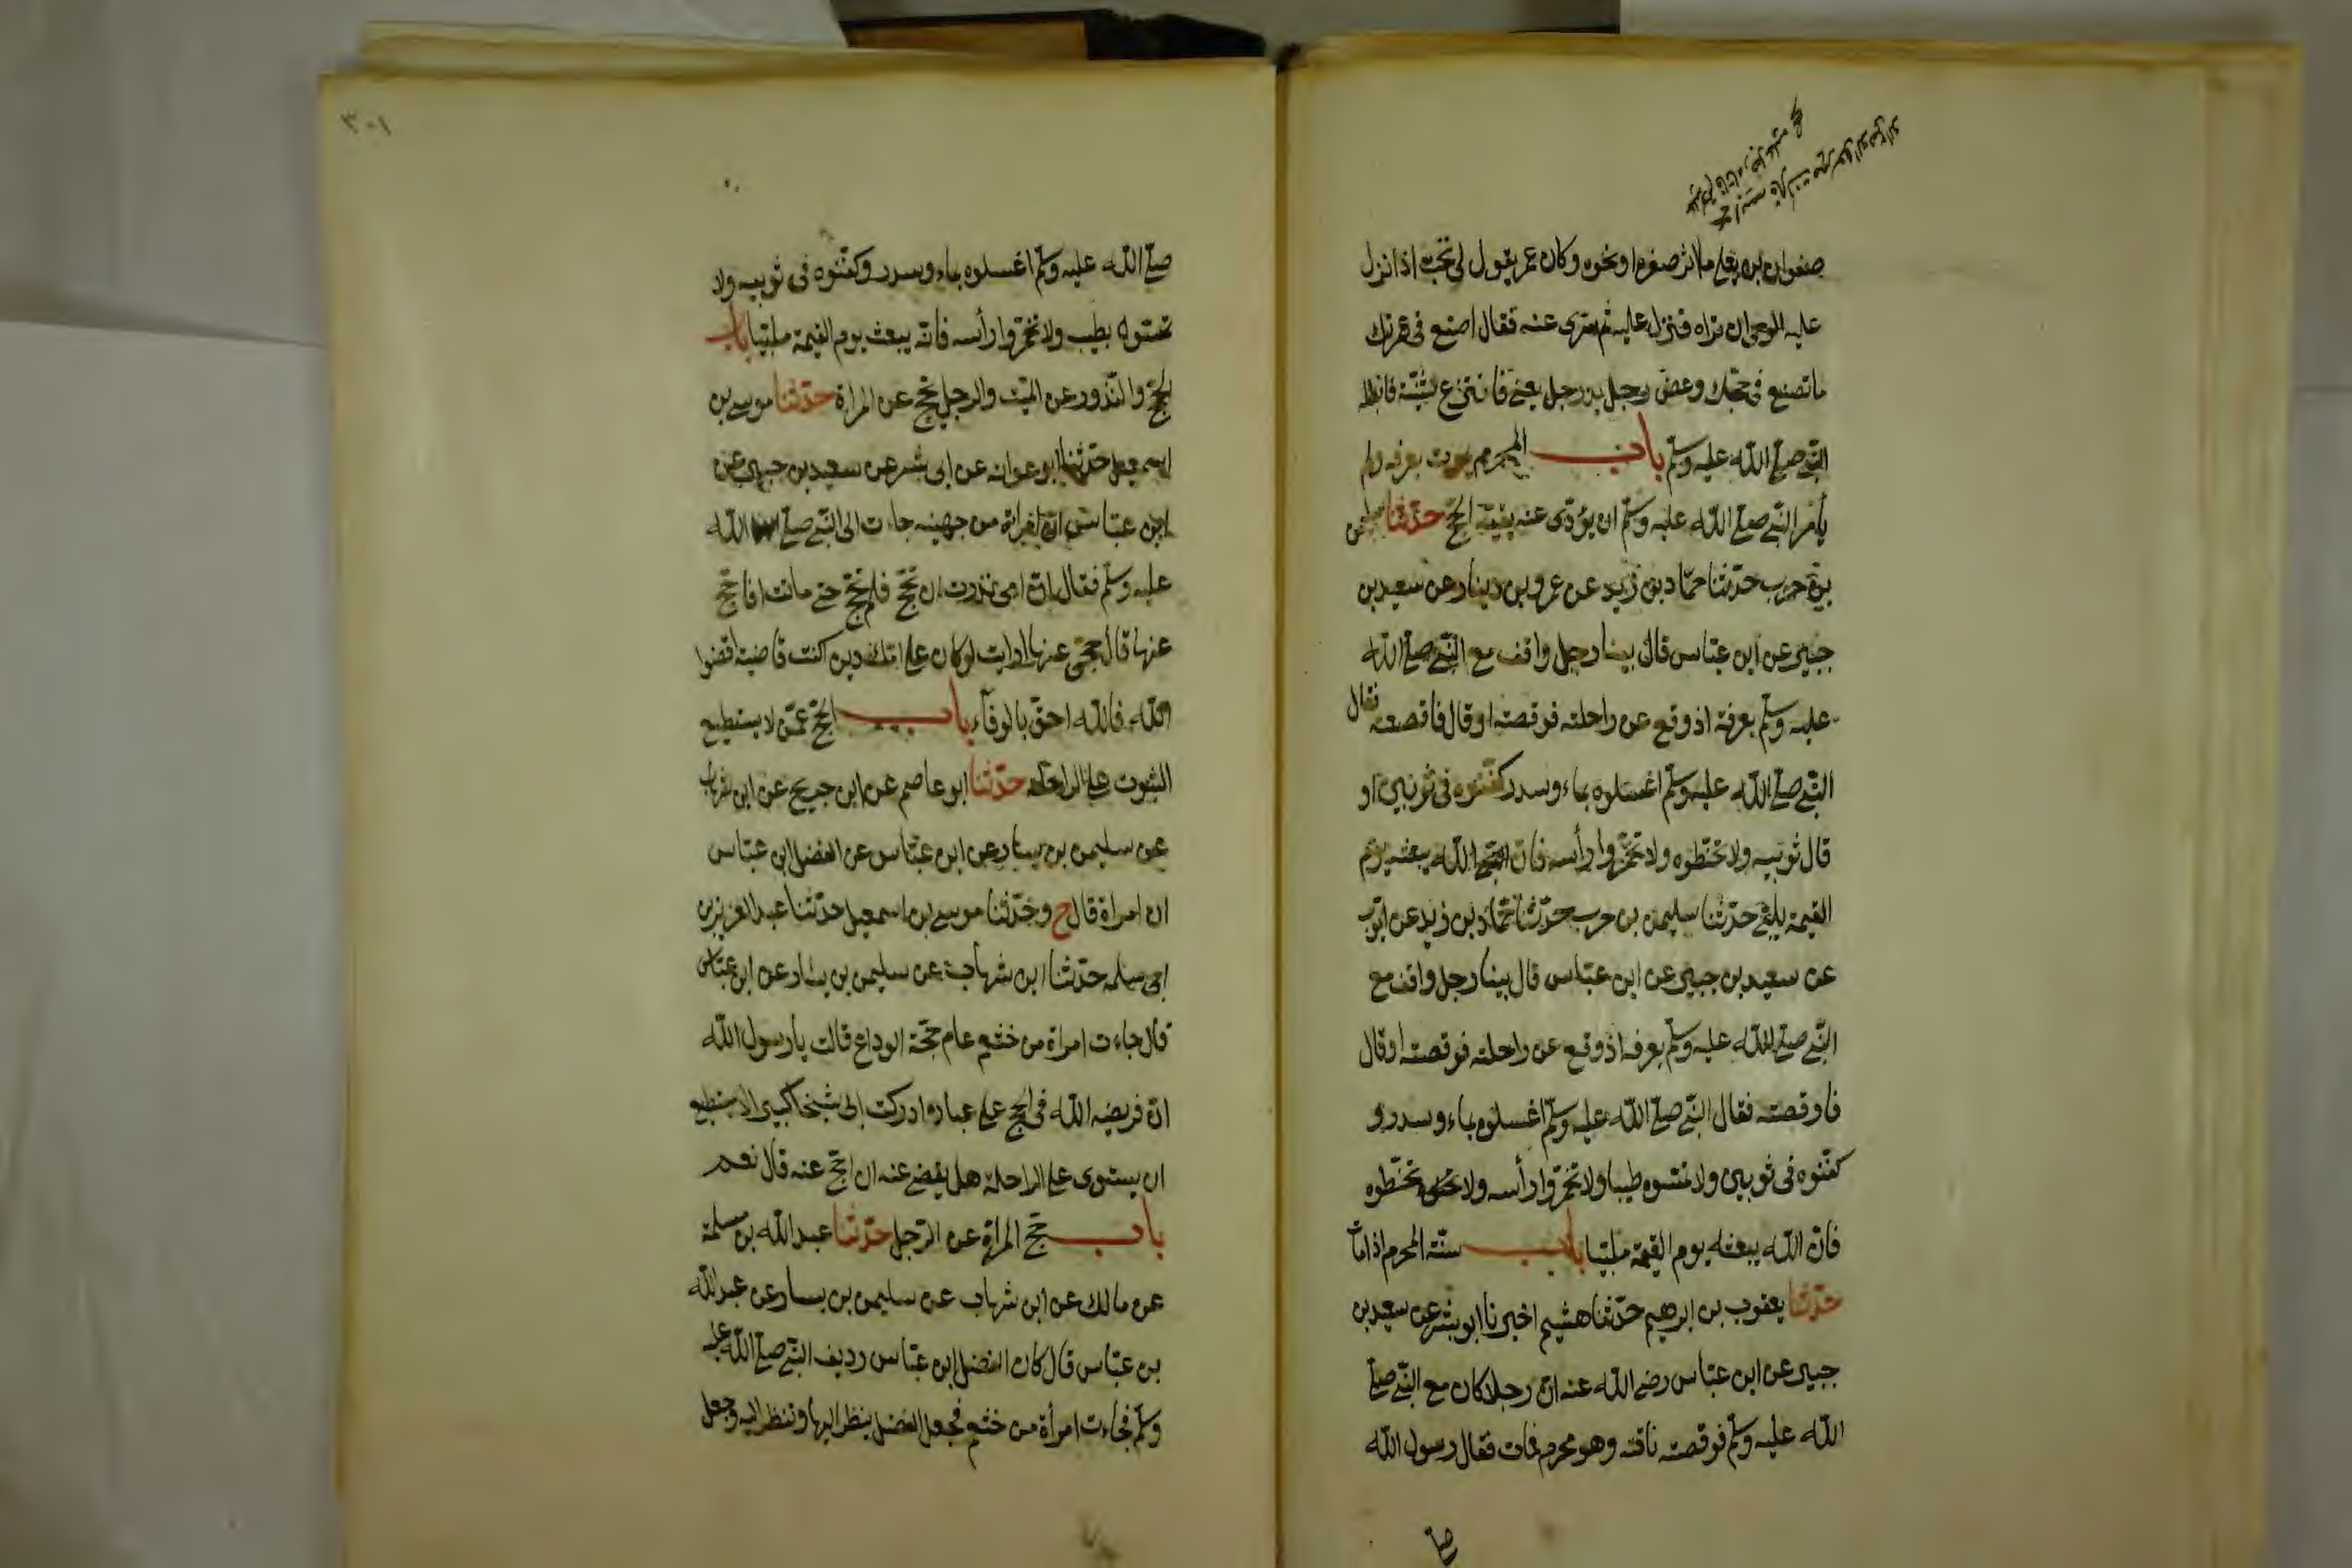 صفوان بن يعلى صفره او نحوه وكان عمر يقول لى تحب اذا نزل
عليه الوحى ان تراه فنزل عليه ثم سرى عنه فقال اصنع فى عمرتك
ما تصنع فى حجك وعض رجل يد رجل يعنى فانتزع ثنيته فابطله
النبى صلى الله عليه وسلم باب المحرم يموت بعرفه ولم
يأمر النبى صلى الله عليه وسلم ان يؤدى عنه بقية الحج حدثنا
حرب حدثنا حماد بن زيد عن عمرو بن دينار عن سعيد بن
جبير عن ابن عباس قال بينا رجل واقف مع النبى صلى الله
عليه وسلم بعرفة اذ وقع عن راحلته فوقصته او قال فاقصعته فقال
النبى صلى الله عليه وسلم اغسلوه بماء وسدر كفنوه فى ثوبين او
قال ثوبيه ولا تحنطوه ولا تخمروا رأسه فان الله يبعثه يوم
القيمه يلبى حدثنا سليمن بن حرب حدثنا حماد بن زيد عن ايوب
عن سعيد بن جبير عن ابن عباس قال بينا رجل واقف مع
النبى صلى الله عليه وسلم بعرفه اذ وقع عن راحلته فوقصته او قال
فاوقصته فقال النبى صلى الله عليه وسلم اغسلوه بماء وسدر و
كفنوه فى ثوبين ولا تمسوه طيبا ولا تخمروا رأسه ولا تحنطوه
فان الله يبعثه يوم القيمة ملبيا باب سنة المحرم اذا مات
حدثنا يعقوب بن ابرهيم حدثنا هشيم اخبرنا ابو بشر عن سعيد بن
جبير عن ابن عباس رضى الله عنه ان رجلا كان مع النبى صلى
الله عليه وسلم فوقصته ناقته وهو محرم فمات فقال رسول الله
صلى
٣٠١
صلى الله عليه وسلم اغسلوه بماء وسدر وكفنوه فى ثوبيه ولا
تمسوه بطيب ولا تخمروا رأسه فانه يبعث يوم القيمة ملبيا باب
الحج والنذور عن الميت والرجل يحج عن المراة حدثنا موسى بن
اسمعيل حدثنا ابو عوانه عن ابى بشر عن سعيد بن جبير عن
ابن عباس ان امراة من جهينه جاءت الى النبى صلى الله
عليه وسلم فقال ان امى نذرت ان تحج فلم تحج حتى ماتت افاحج
عنها قال حجى عنها ارايت لو كان على امك دين كنت قاضيته اقضوا
الله فالله احق بالوفآء باب الحج عمن لا يستطيع
الثبوت على الراحله حدثنا ابو عاصم عن ابن جريج عن ابن شهاب
عن سليمن بن يسار عن ابن عباس عن الفضل ابن عباس
ان امراة قال ح وحدثنا موسى بن اسمعيل حدثنا عبد العزيز بن
ابى سلمه حدثنا ابن شهاب عن سليمن بن يسار عن ابن عباس
قال جاءت امراة من خثعم عام حجة الوداع قالت يا رسول الله
ان فريضه الله فى الحج على عباده ادركت ابى شيخا كبيرا لا يستطيع
ان يستوى على الراحلة هل يقضى عنه ان احج عنه قال نعم
باب حج المراة عن الرجل حدثنا عبد الله بن مسلمة
عن مالك عن ابن شهاب عن سليمن بن يسار عن عبد الله
بن عباس قال كان الفضل ابن عباس رديف النبى صلى الله عليه
وسلم فجاءت امرأة من خثعم فجعل الفضل ينظر اليها وتنظر اليه وجعل